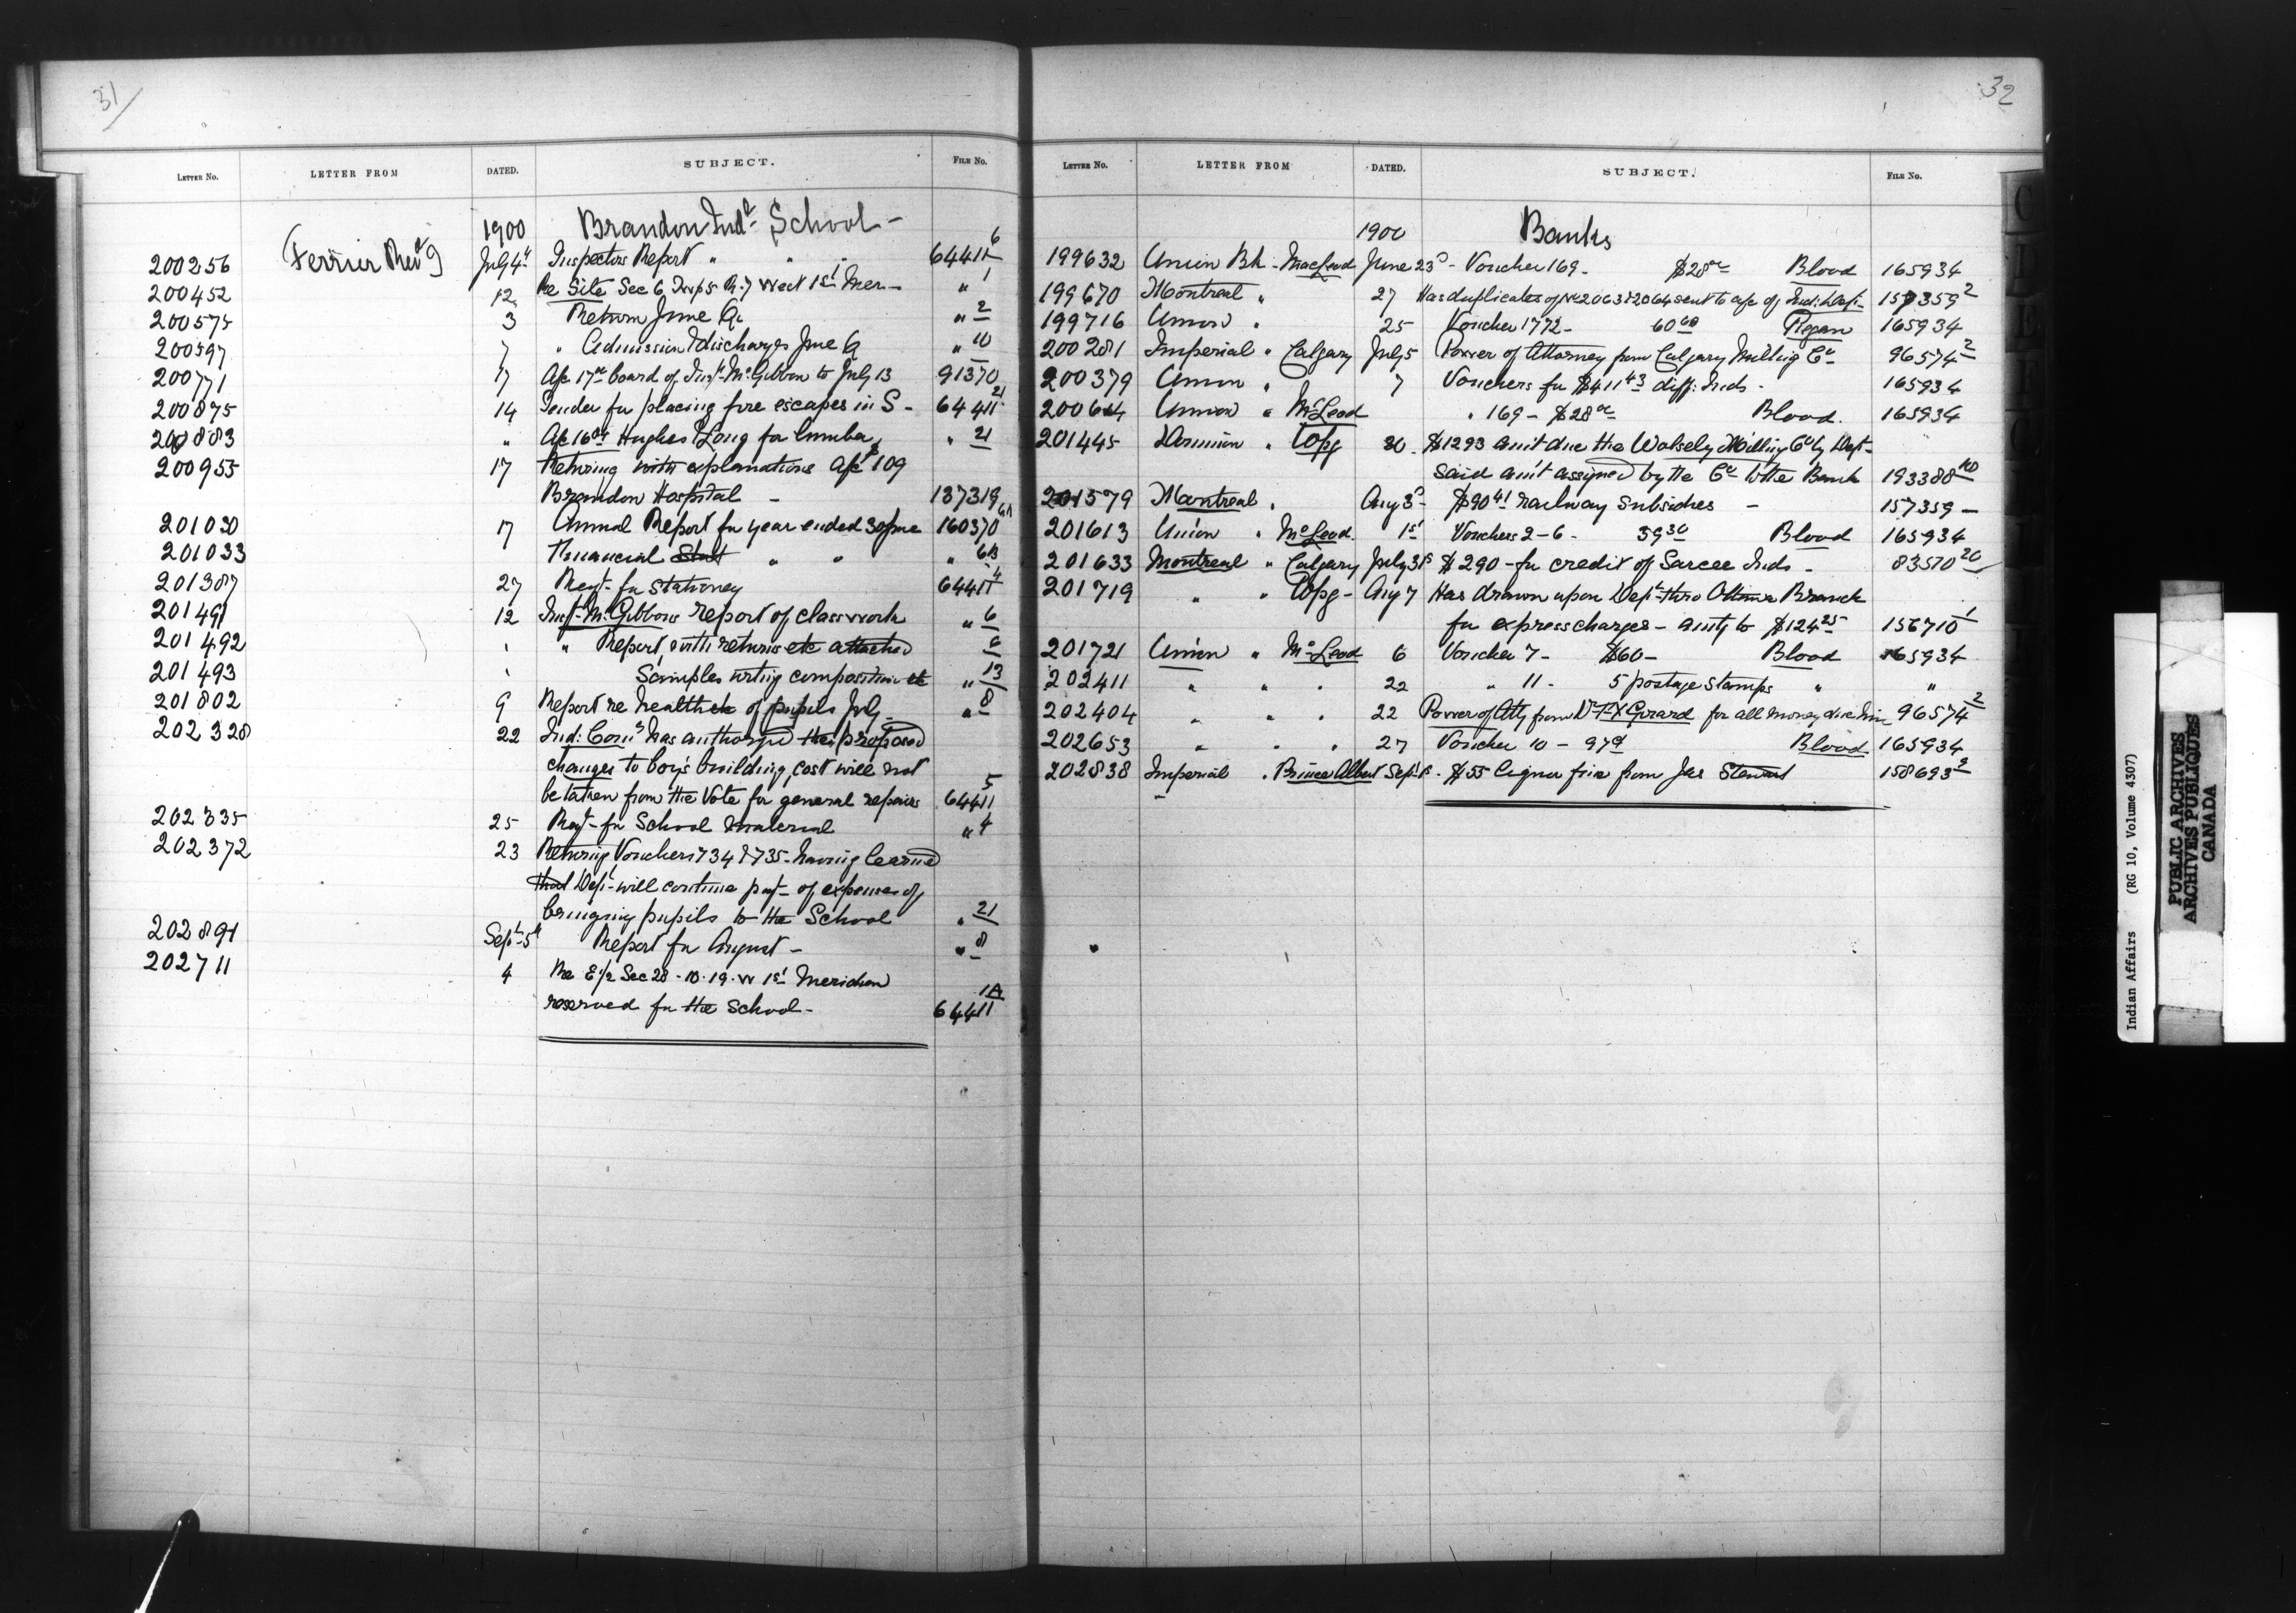 31
LETTER No. LETTER FROM DATED. SUBJECT. FILE No.
1900 Brandon Indl School -
200256 Ferrier Revd J July 4th Inspectors Report " " " 64411 6
200452 12 Re Site Sec 6 Twp 5 R. 7 West 1st Mer - " 1
200575 3 Return June Qr " 2
200597 7 " Admission & discharges June Q " 10
200771 17 A/c 17.00 board of Inspr McGibbon to July 13 91370
200875 14 Tender for placing fire escapes in S - 64411 21
200883 " A/c 16.04 Hughes & Long for lumber " 21
200955 17 Returning with explanations A/c $109
Brandon Hospital - 137319
201030 17 Annual Report for year ended 30 June 160370 6A
201033 Financial Stat " " " 6B
201387 27 Reqt. for Stationery 64411 4
201491 12 Inspr McGibbons report of class work " 6
201492 " " Report with returns etc attached 6
201493 " Samples writing composition etc " 13
201802 9 Report re health of pupils July " 8
202328 22 Ind: Comr has authorized the proposed
changes to boy's building, cost will not
be taken from the Vote for general repairs 64411 5
202335 25 Reqt. for School material " 4
202372 23 Returning Vouchers 734 & 735 - having learned
that Dept. will continue payt. of expenses of
bringing pupils to the School " 21
202891 Sept. 5th Report for August - " 8
202711 4 Re E ½ Sec 28 - 10 . 19 . W 1st Meridian
reserved for the School - 64411 1A
32
LETTER No. LETTER FROM DATED. SUBJECT. FILE No.
1900 Banks
199632 Union Bk. MacLeod June 23d - Voucher 169 - $28.00 Blood 165934
199670 Montreal " 27 Has duplicates of Nos 2063 & 2064 sent to a/c of Ind: Dept. 157359 2
199716 Union " 25 Voucher 1772 - 60.60 Piegan 165934
200281 Imperial " Calgary July 5 Power of Attorney from Calgary Milling Co 96574 2
200379 Union " 7 Vouchers for $411.43 diff: Inds - 165934
200644 Union " McLeod " 169 - $28.00 Blood. 165934
201445 Dominion " Wpg 30 . $1293 amt due the Wolsely Milling Co by Dept -
said amt assigned by the Co to the Bank 193388 10
201579 Montreal " Aug 3d - $90.41 railway subsidies - 157359 -
201613 Union " McLeod. 1st Vouchers 2 - 6 - 59.30 Blood 165934
201633 Montreal " Calgary July 31st $290 - for credit of Sarcee Inds - 83570 20
201719 " " Wpg - Aug 7 Has drawn upon Dept. thro Ottawa Branch
for express charges - amtg to $124.25 - 156710 1
201721 Union " McLeod 6 Voucher 7 - $60 - Blood 165934
202411 " " " 22 " 11 - 5 postage stamps " "
202404 " " " 22 Power of Atty from Dr F. X Girard for all money due him 96574 2
202653 " " " 27 Voucher 10 - 97c Blood 165934
202838 Imperial " Prince Albert Sept 1st . $55 liquor fine from Jas Stewart 158693 2
Indian Affairs (RG 10, Volume 4307)
PUBLIC ARCHIVES
ARCHIVES PUBLIQUES
CANADA